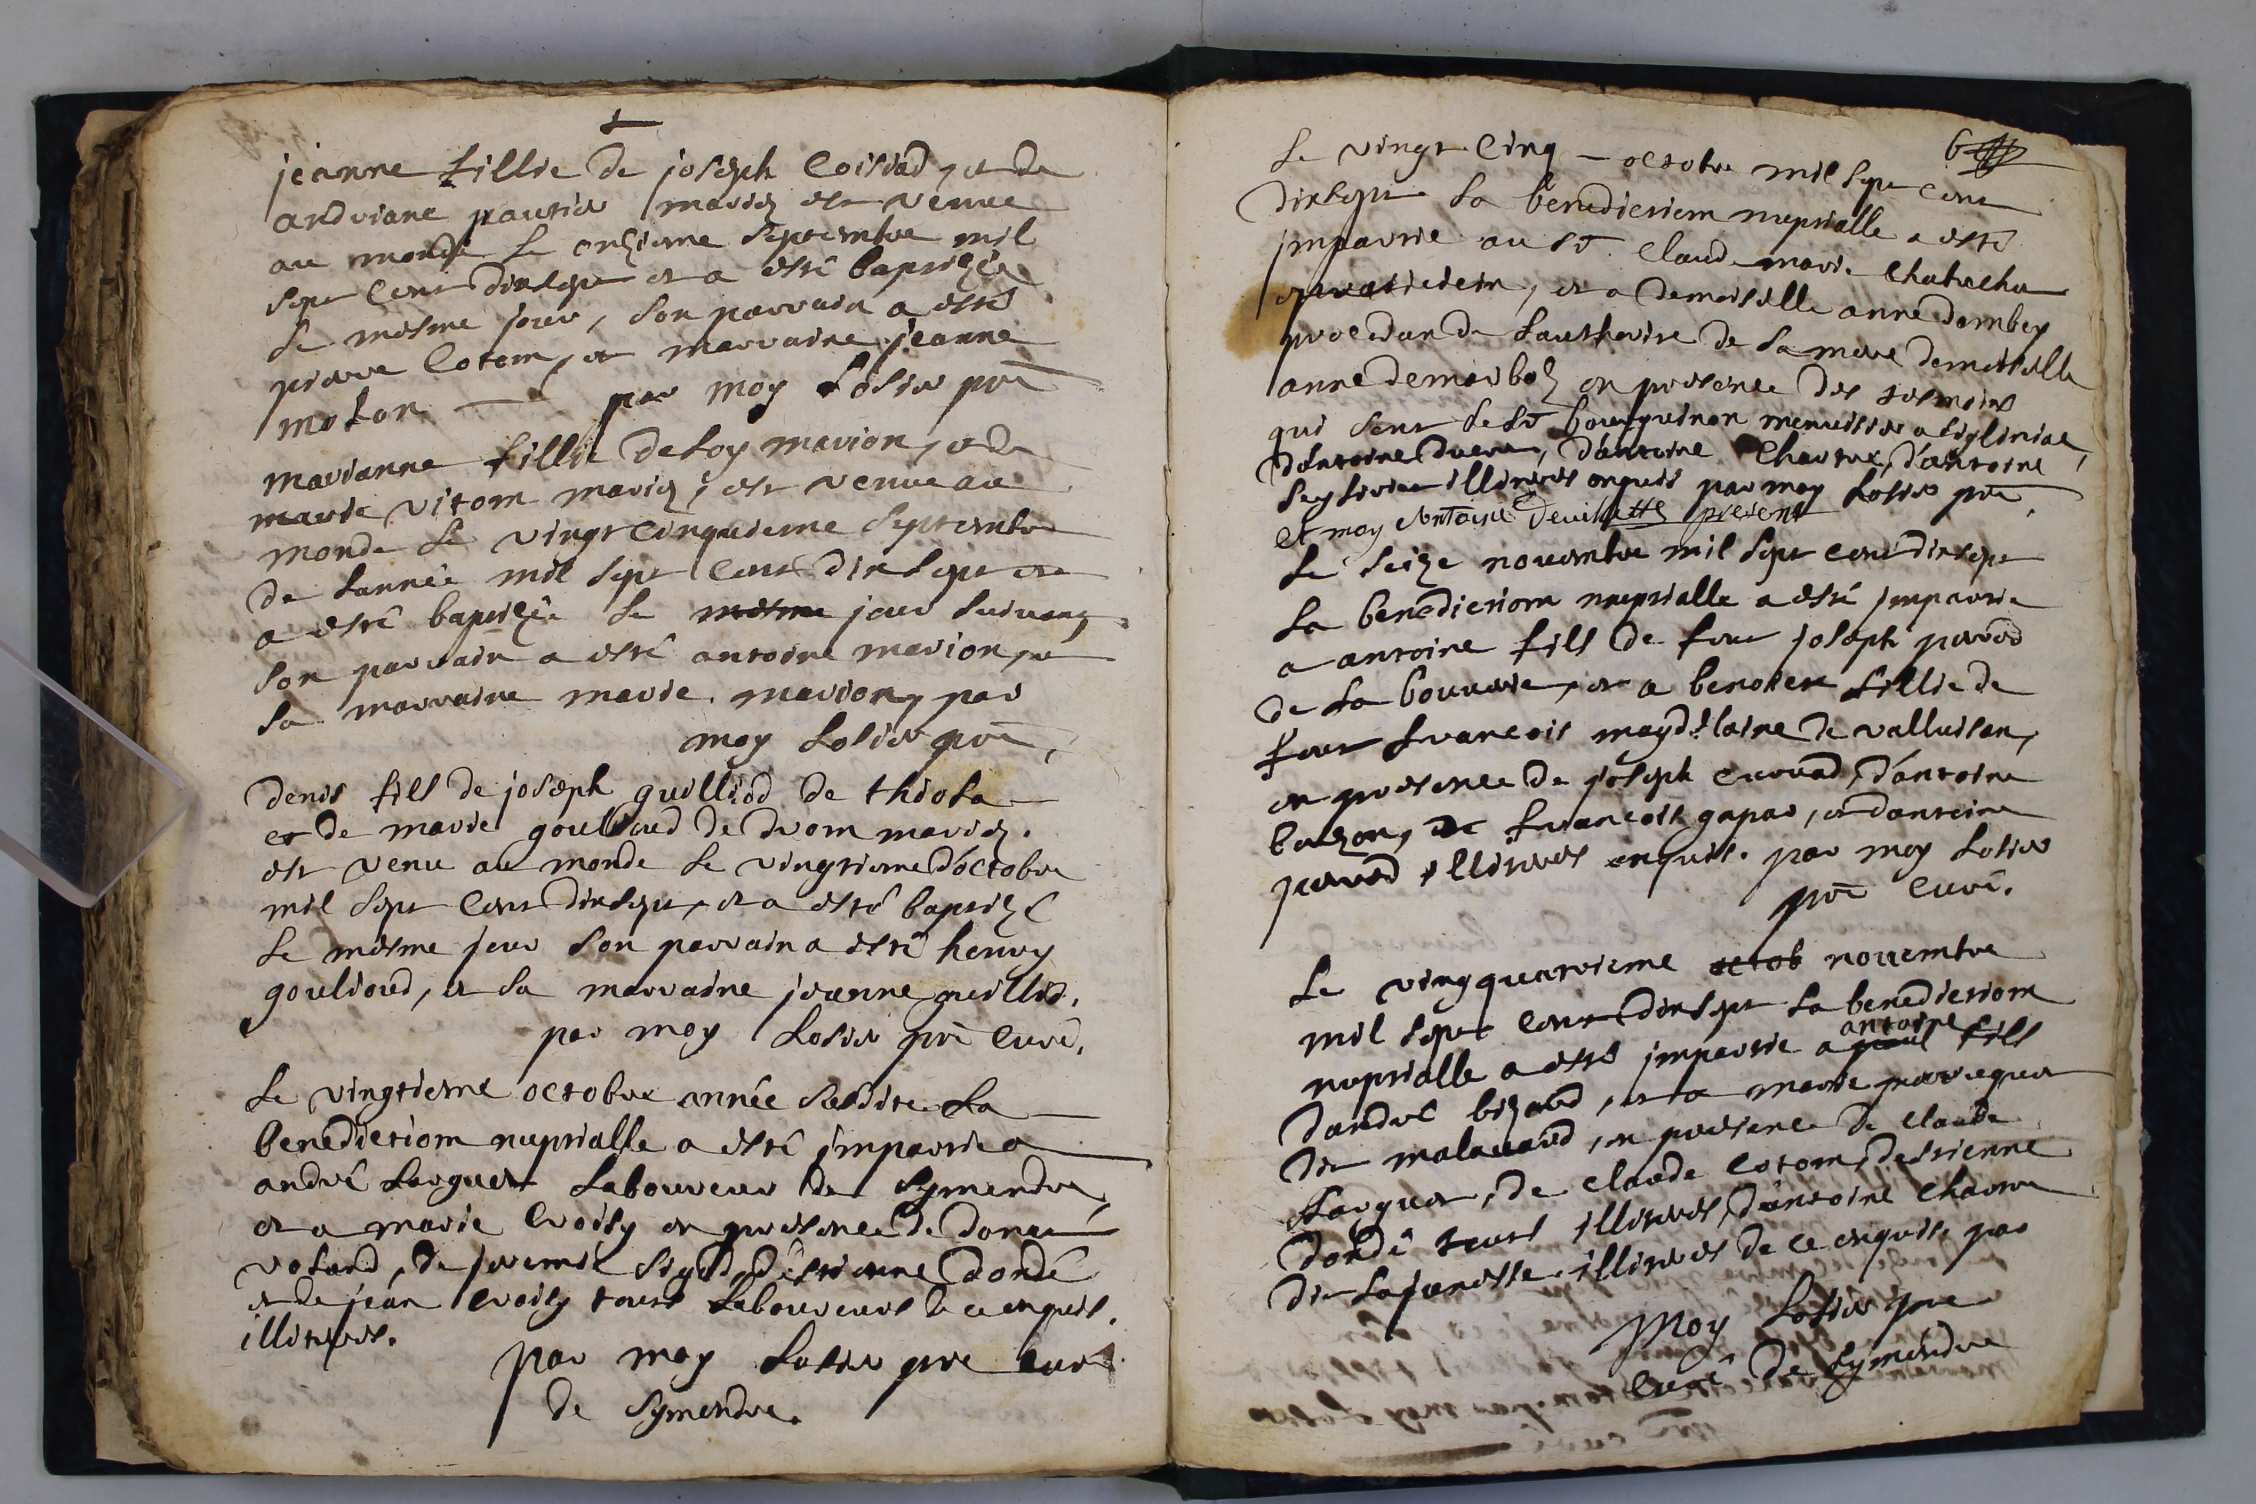 jeanne fillie de joseph Coisiad, et de
andriane pautier mariez est venue
au monde le onzieme septembre mil
sept cent dixsept et a esté baptizée
le mesme jour, son parrain a esté
pierre Cotem, et marraine jeanne
moton par moy Losier pre
marianne fillie de Loy marion, et de
marie vitom mariez, est venue au
monde le vingt cinquieme septembre
de lannée mil sept cent dixsept et
a esté baptizée le mesme jour suivant
son parrain a esté antoine marion, et
sa marraine marie marion, par
moy Losier pre,
denis fils de joseph guilliod de thiola
et de marie goulioud de drom mariez.
est venu au monde le vingtieme d'octobre
mil sept cent dixsept, et a esté baptizé
le mesme jour son parrain a esté henry
goulioud, et sa marraine jeanne guilliod.
par moy Losier pre curé.
Le vingtieme octobre année susdite La
benedictiom nuptialle a esté impartie a
andré Larguet Laboureur de Symendre,
et a marie Croisy en presence de
voland, de jeremie etienne dondé
et de jean Croisy tous Laboureurs de ce enquis.
illiteres.
par moy Losier pre curé
de Symendre.
6
Le vingt Cinq octobre mil sept cent
dixsept La benedictiom nuptialle a esté
impartie au Sr. Claude marie Chatrechu
et a demoiselle anne dombey
procedan de Lauthorité de sa mere demoiselle
anne demoirboz en presence des tesmoins
qui sont le Sr bourguinon menuisier a
d'antoine d'antoine Chartre, d'antoine
illiteres enquis par moy Losier pre
et moy present
Le seize novembre mil sept cent dixsept
La benedictiom nuptialle a esté impartie
a antoine fils de feu joseph perrod
de La bouverie, et a benoiten fillie de
feu francois maydelaine de valluisan,
en presence de joseph curvad, d'antoine
buzon, de francois gapar, et dantoine
perrod illiteres enquis. par moy Losier
pre curé.
Le vingquatrieme octob novembre
mil sept cent dixsept La benedictiom
antoine
nuptialle a esté impartie a paul fils
dandré bizard, et a marie
de malavard, en presence de claude
Larguet, de claude Cotom, destienne
dondé tous illiteres, dantoine Chartre
de Lajanesse illiteres de ce enquis. par
Moy Losier pre
Curé de Symendre